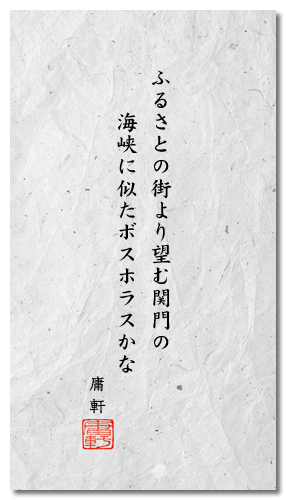 ふるさとの街より望む関門の
海峡に似たボスホラスかな
庸軒